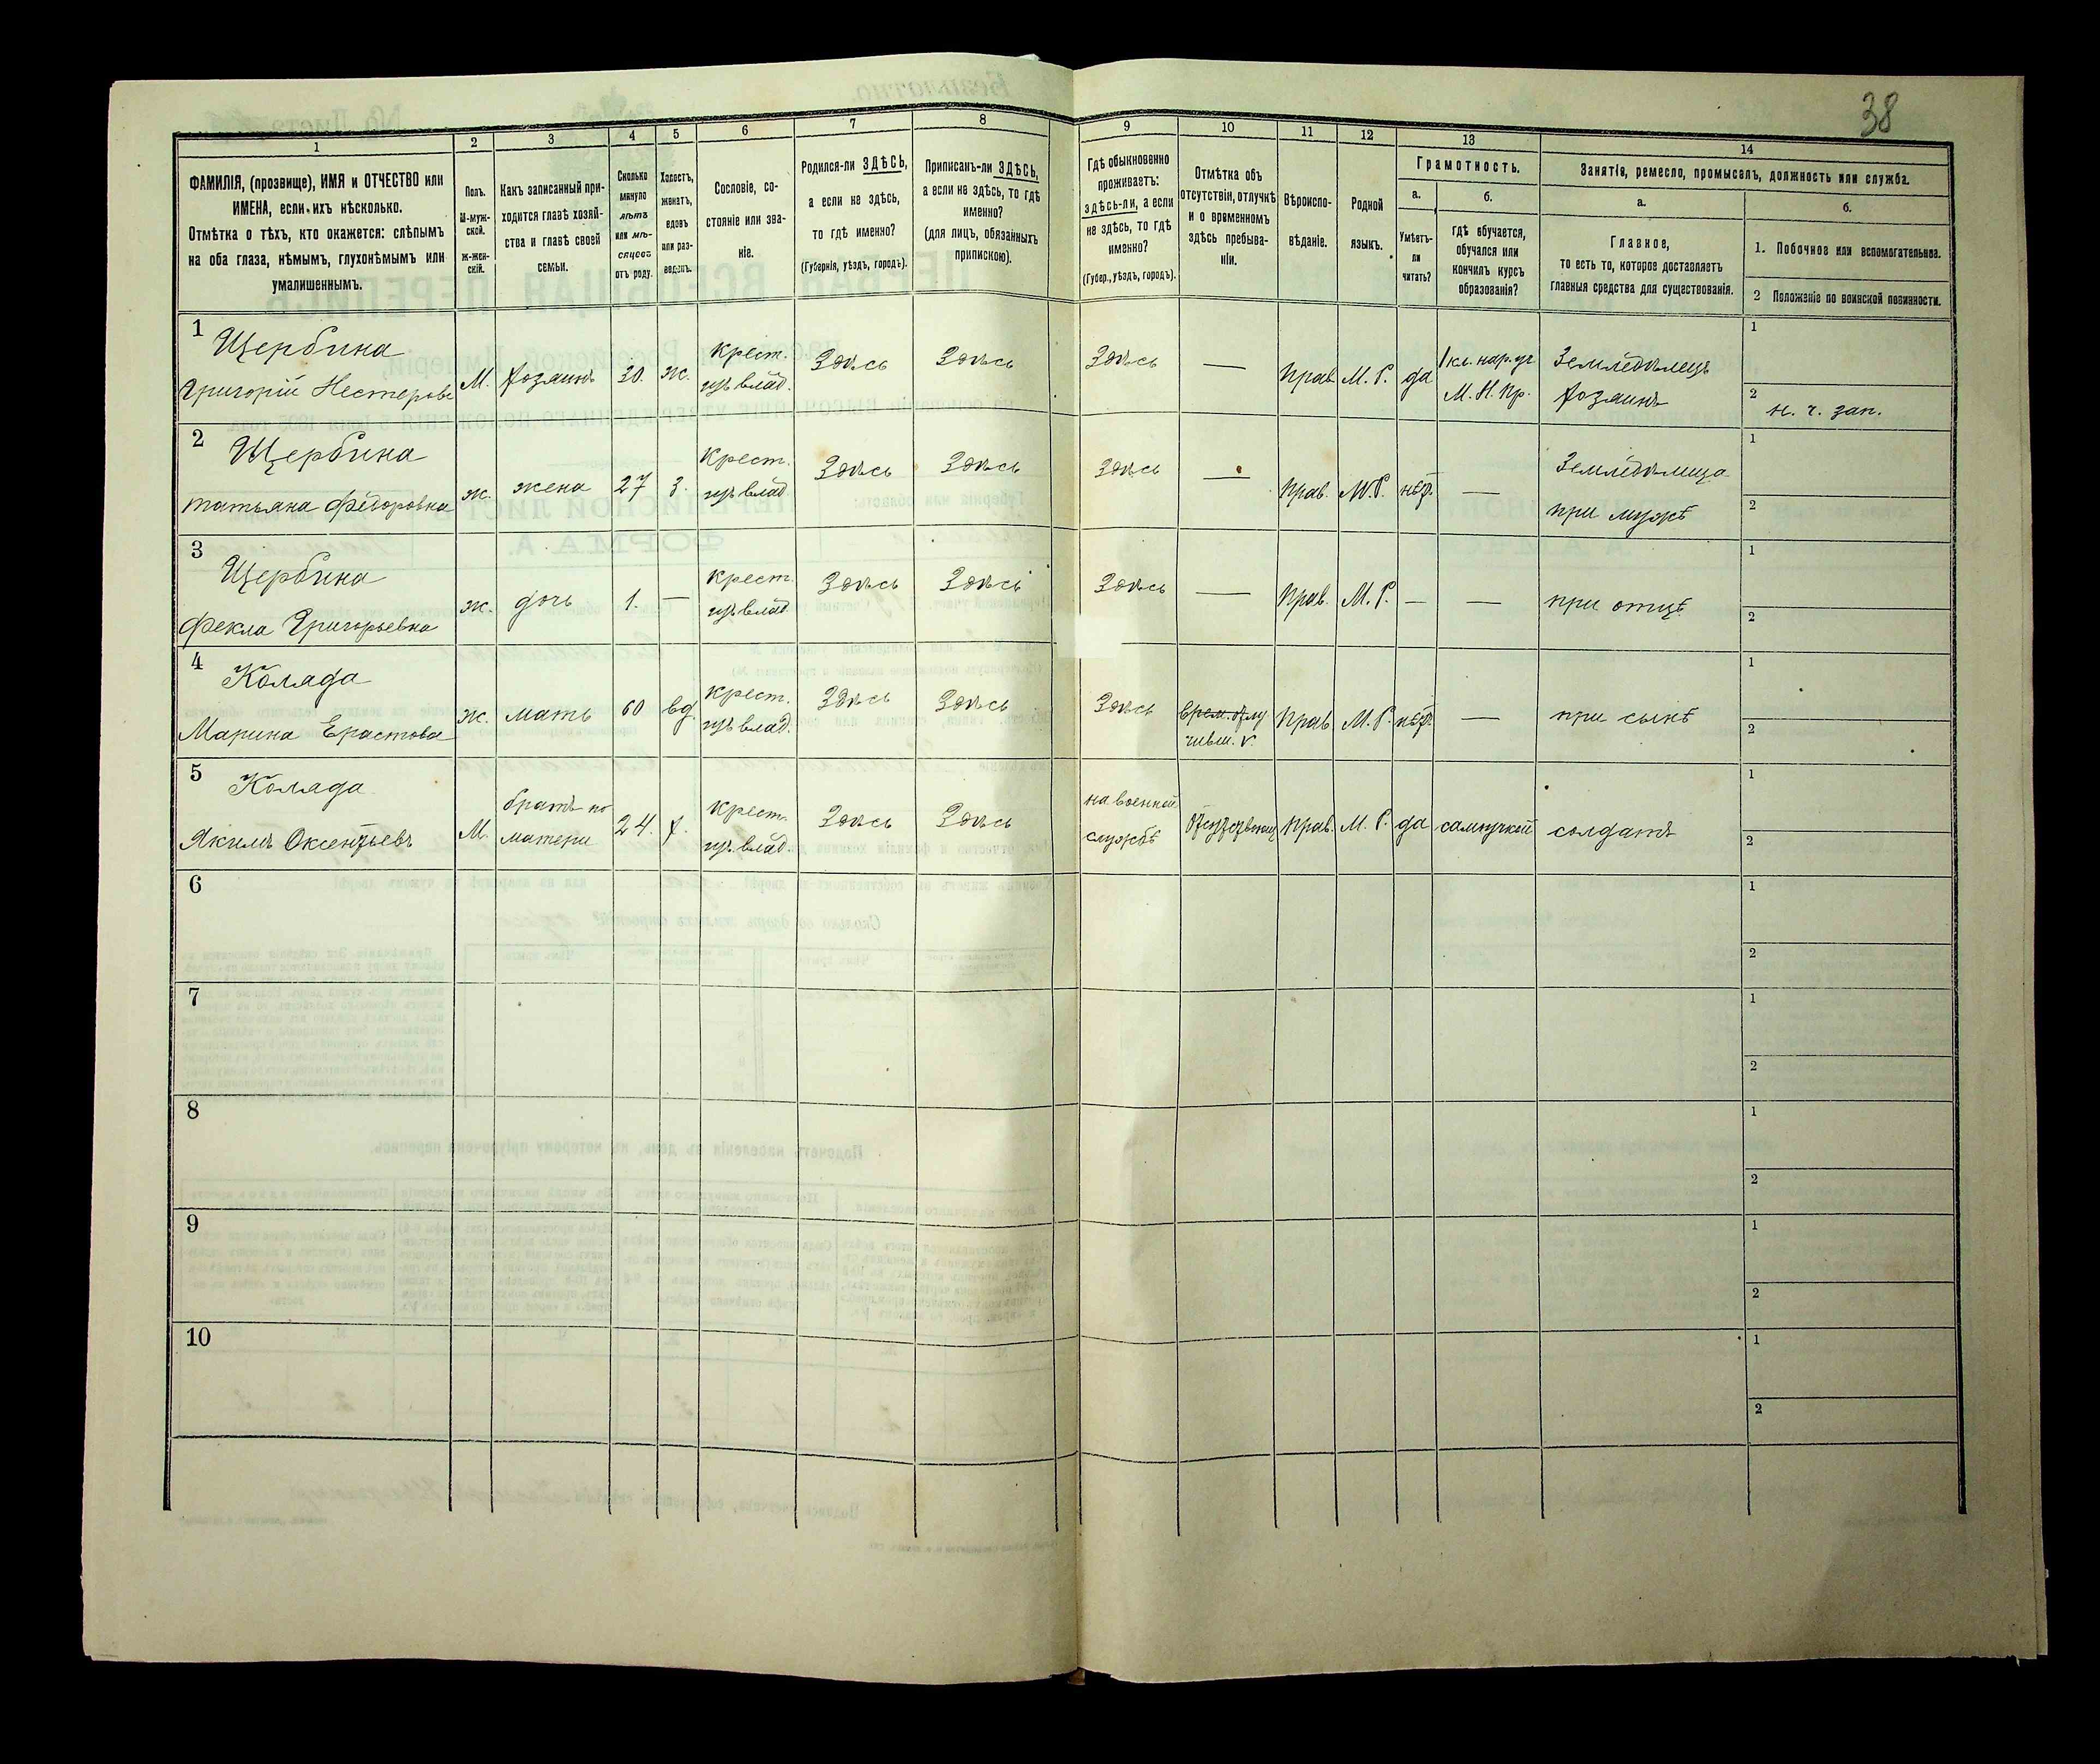 38
1
2
3
4
5
6
7
8
9
10
11
12
13
14
ФАМИЛІЯ, (прозвище), ИМЯ и ОТЧЕСТВО или
ИМЕНА, если ихъ нѣсколько.
Отмѣтка о тѣхъ, кто окажется: слѣпымъ
на оба глаза, нѣмымъ, глухонѣмымъ или
умалишеннымъ.
Полъ.
М-муж-
ской.
Ж-жен-
скій.
Какъ записанный при-
ходится главѣ хозяй-
ства и главѣ своей
семьи.
Сколько
минуло
лѣтъ
или мѣ-
сяцевъ
отъ роду.
Холостъ,
женатъ,
вдовъ
или раз-
веденъ.
Сословіе, со-
стояніе или зва-
ніе.
Родился-ли ЗДѢСЬ,
а если не здѣсь,
то гдѣ именно?
(Губернія, уѣздъ, городъ).
Приписанъ-ли ЗДѢСЬ,
а если не здѣсь, то гдѣ
именно?
(для лицъ, обязанныхъ
припискою).
Гдѣ обыкновенно
проживаетъ:
здѣсь-ли, а если
не здѣсь, то гдѣ
именно?
(Губер., уѣздъ, городъ).
Отмѣтка объ
отсутствіи, отлучкѣ
и о временномъ
здѣсь пребыва-
ніи.
Вѣроиспо-
вѣданіе.
Родной
языкъ.
Грамотность.
а.
Умѣетъ-
ли
читать?
б.
гдѣ обучается,
обучался или
кончилъ курсъ
образованія?
Занятія, ремесло, промыселъ, должность или служба.
а.
Главное,
то есть то, которое доставляетъ
главныя средства для существованія.
б.
1. Побочное или вспомогательное.
2 Положеніе по воинской повинности.
1 Щербина
Григорій Нестеровъ
М.
хозяинъ
30.
ж.
крест.
изъ влад.
Здѣсь
Здѣсь
Здѣсь
—
прав.
М. Р.
да
1 кл. нар. уч.
М. Н. Пр.
Земледѣлецъ
хозяинъ
1
2
н. ч. зап.
2 Щербина
Татьяна Фёдоровна
ж.
жена
27
з.
крест.
изъ влад.
Здѣсь
Здѣсь
Здѣсь
—
прав.
М. Р.
нѣт.
—
Земледѣлица
при мужѣ
1
2
3 Щербина
Фекла Григорьевна
ж.
дочь
1.
—
крест.
изъ влад.
Здѣсь
Здѣсь
Здѣсь
—
прав.
М. Р.
—
—
при отцѣ
1
2
4 Коляда
Марина Ерастова
ж.
мать
60
вд.
крест.
изъ влад.
Здѣсь
Здѣсь
Здѣсь
врем. отлу
чивш. v.
прав
М. Р.
нѣт.
—
при сынѣ
1
2
5 Коляда
Якимъ Оксентьевъ
М.
братъ по
матери
24.
х.
крест.
изъ влад.
Здѣсь
Здѣсь
на военной
службѣ
прав.
М. Р.
да
самоучкой
солдатъ
1
2
6
1
2
7
1
2
8
1
2
9
1
2
10
1
2